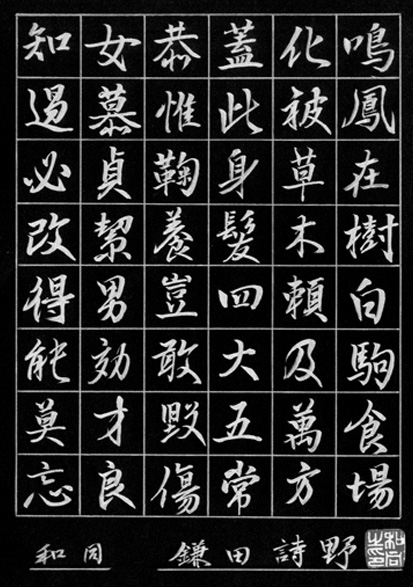 鳴鳳在樹白駒食場
化被草木頼及萬方
蓋此身髮四大五常
恭惟鞠養豈敢毀傷
女慕貞絜男効才良
知過必改得能莫忘
和同 鎌田詩野
和同之印